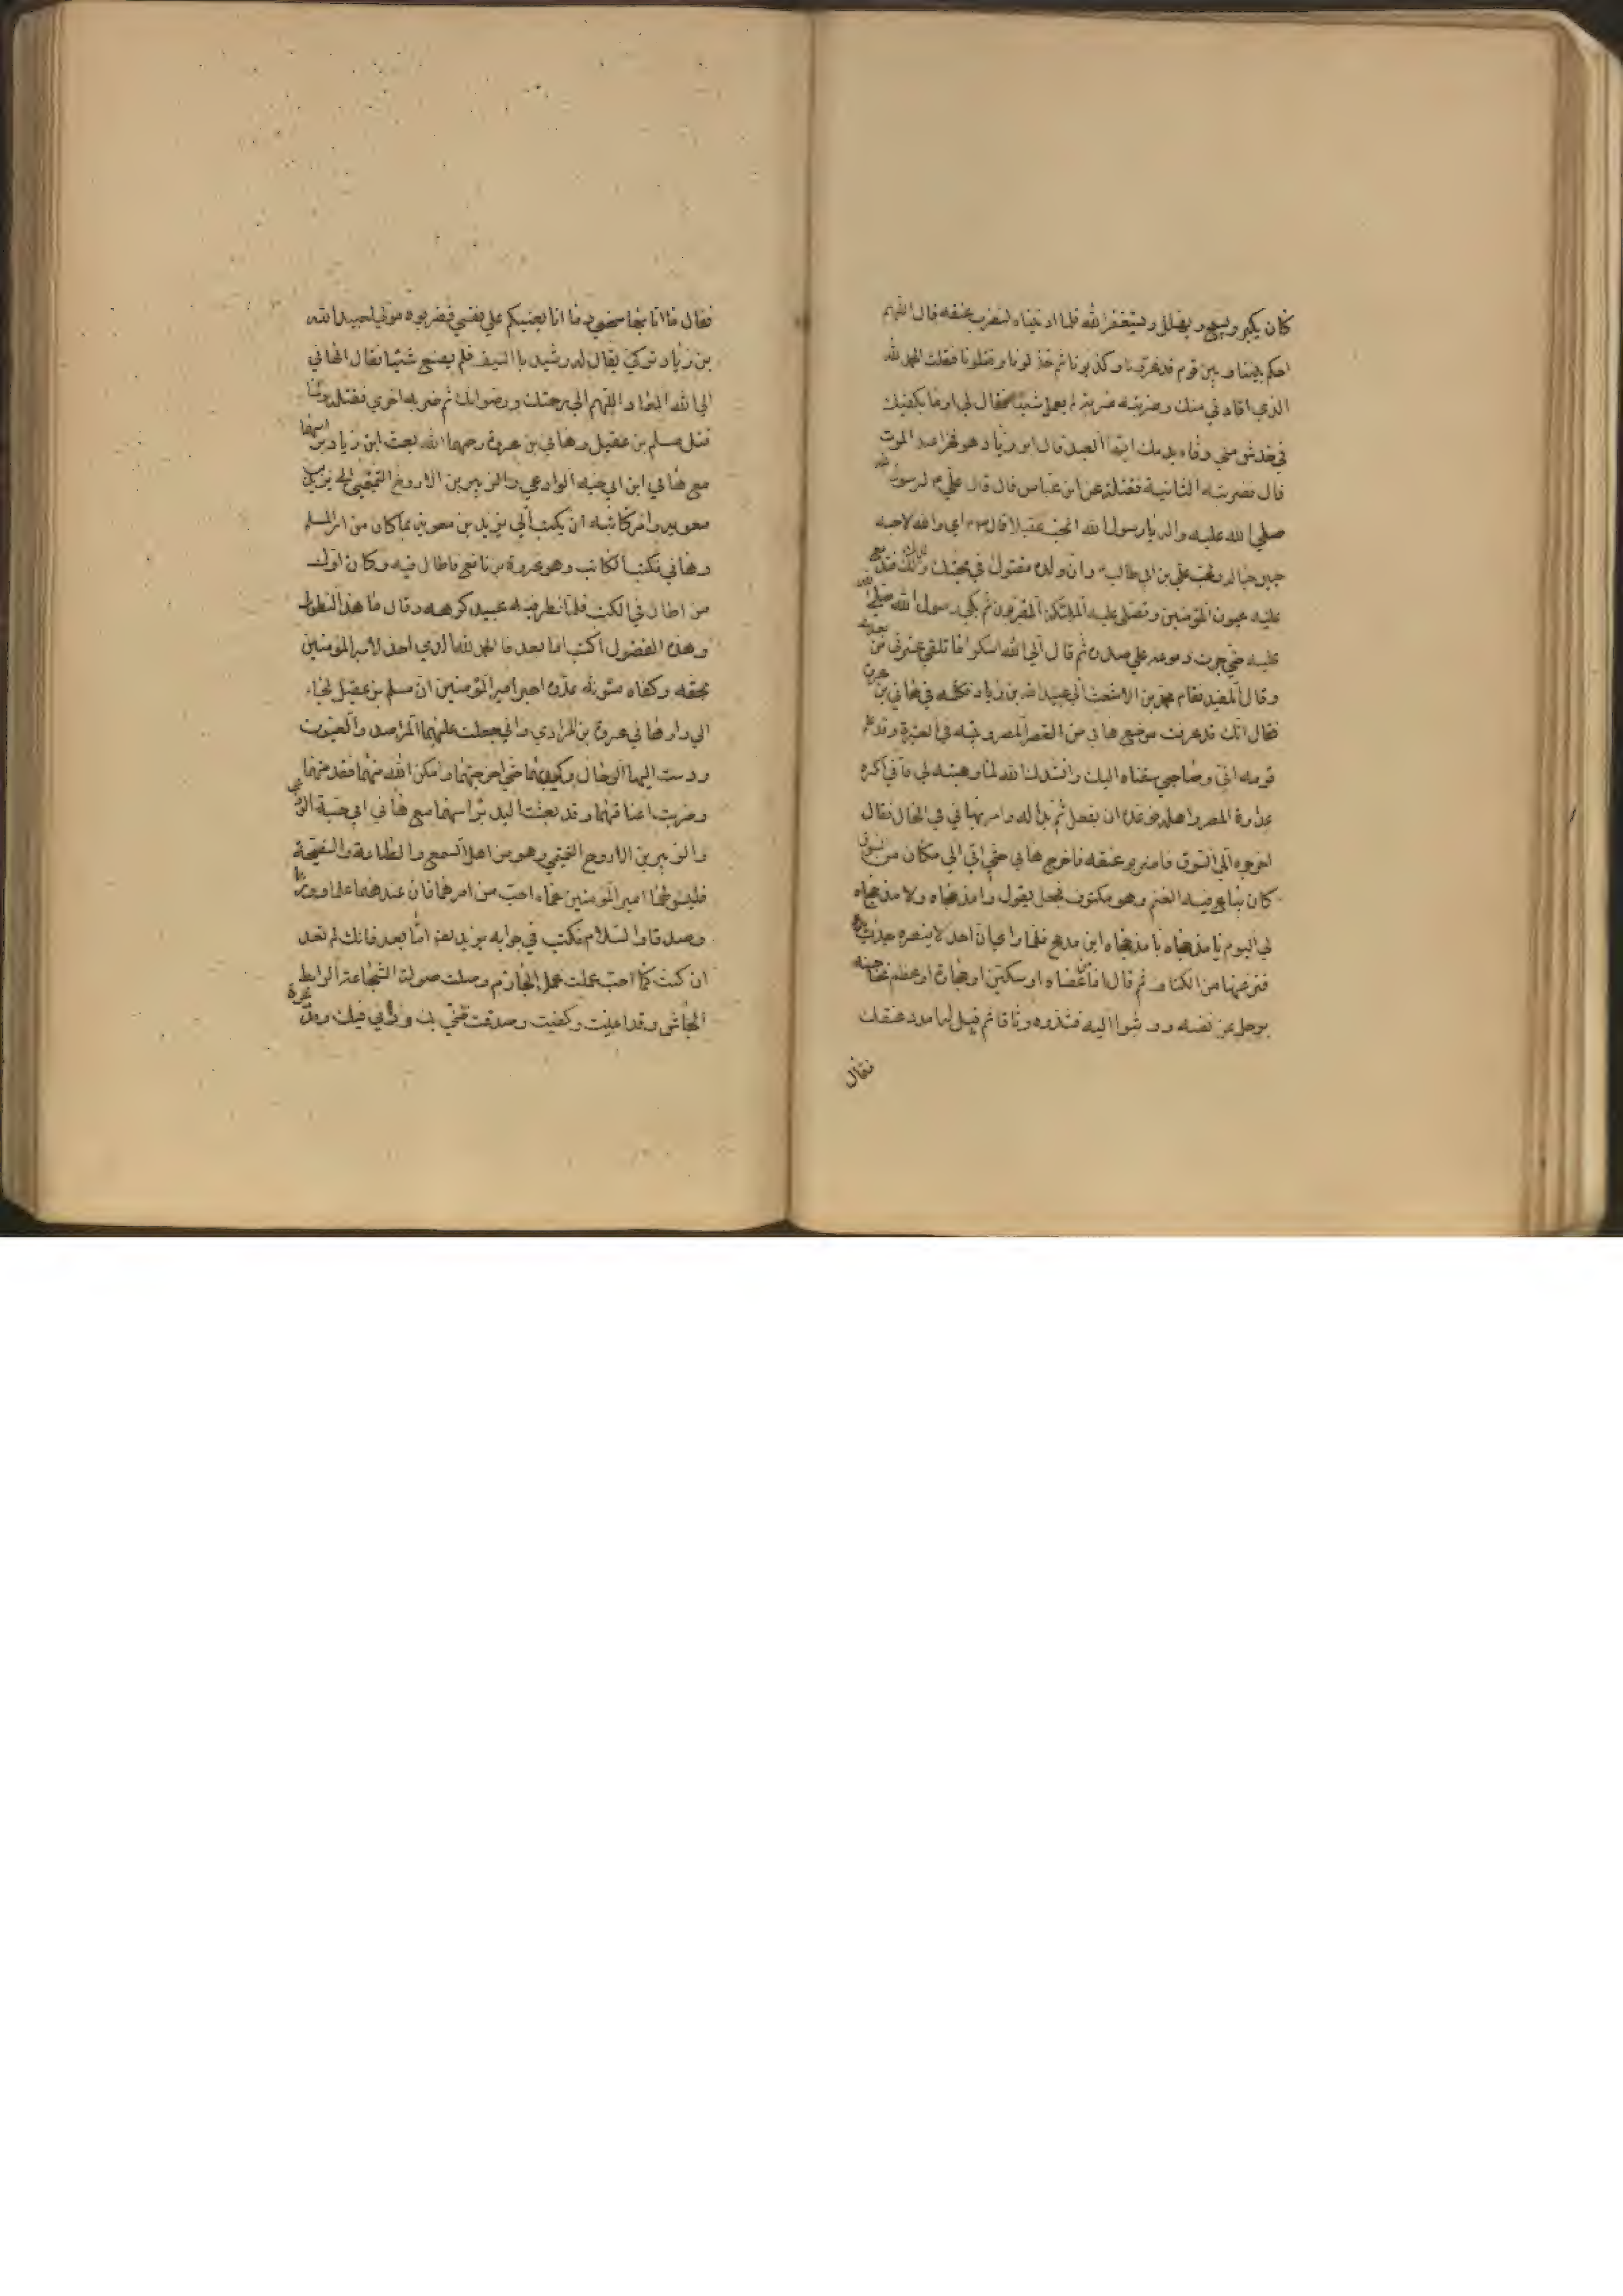 كان يكبر ويسبح ويهلل ويستغفر الله فلما ادنيناه لنضرب عنقه قال اللهم
احكم بيننا وبين قوم قد غرونا وكذبونا ثم خذلونا وقتلونا فقلت الحمد لله
الذي اقادني منك وضربته ضربة لم يعمل شيئا فقال لي اوما يكفيك
في خدش مني وفاء بدمك ايها العبد قال ابن زياد وفخرا عند الموت
قال فضربته الثانية فقتلته عن ابن عباس قال قال علي لرسول الله
صلى الله عليه واله يا رسول الله اتحب عقيلا قال اي والله لاحبه
حبين حبا له ولحب علي بن ابي طالب وان ولده مقتول في محبة ولدك فتدمع
عليه عيون المؤمنين وتصلي عليه الملئكة المقربون ثم بكى رسول الله صلى الله
عليه حتى جرت دموعه على صدره ثم قال الى الله اشكو ما تلقى عترتي من بعدي
وقال المفيد فقام محمد بن الاشعث الى عبيد الله بن زياد فكلمه في هاني بن عروة
فقال انك قد عرفت موضع هاني من المصر وبيته في العشيرة وقد علم
قومه اني وصاحبي سقناه اليك وانشدك الله لما وهبته لي فاني اكره
عداوة المصر واهله فوعده ان يفعل ثم بدا له وامر بهاني في الحال فقال
اخرجوه الى السوق فاضربو عنقه فاخرج هاني حتى اتي الى مكان من السوق
كان يباع فيه الغنم وهو مكتوف فجعل يقول وا مذحجاه ولا مذحج
لي اليوم يا مذحجاه يا مذحجاه اين مذحج فلما راى ان احد لا ينصره جذب يده
فنزعها من الكتاف ثم قال اما عصاه او سكين او حجارة او عظم يحاجز به
رجل عن نفسه ووثبوا اليه فشدوه وثاقا ثم قيل له امدد عنقك
فقال
فقال ما انا بها بسخي وما انا بمعينكم على نفسي فضربوه مولى لعبيد الله
بن زياد تركي يقال له رشيد بالسيف فلم يصنع شيئا فقال هاني
الى الله المعاد اللهم الى رحمتك ورضوانك ثم ضربه اخرى فقتله ولما
قتل مسلم بن عقيل وهاني بن عروة رحمهما الله بعث ابن زياد براسهما
مع هاني ابن ابي حيه الوادعي والزبير بن الاروح التميمي الى يزيد بن
معويه وامر كاتبه ان يكتب الى يزيد بن معوية بما كان من امر مسلم
وهاني فكتب الكاتب وهو عمروة بن نافع فاطال فيه وكان اول
من اطال في الكتب فلما نظر فيه عبيد كرهه وقال ما هذا التطويل
وهذه الفضول اكتب اما بعد فالحمد لله الذي اخذ لامير المؤمنين
بحقه وكفاه مؤنة عدوه اخبر امير المؤمنين ان مسلم بن عقيل لجاء
الى دار هاني عروة بن المرادي واني جعلت عليهما المراصد والعيون
ودست اليهما الرجال وكدتهما حتى اخرجتهما وامكن الله منهما فقدمتهما
وضربت اعناقهما وقد بعثت اليك براسهما مع هاني ابي حية الوادعي
والزبير بن الاروح التميمي وهو من اهل السمع والطاعة والنصيحة
فليسئلهما امير المؤمنين عما احب من امرهما فان عندهما علما وورعا
وصدقا والسلام فكتب في جوابه يزيد لعنه اما بعد فانك لم تعد
ان كنت كما احب عملت عمل الحازم وصلت صولة الشجاعة الرابط
الجاش وقد اغنيت وكفيت وصدقت ظني بك ورايي فيك وقد